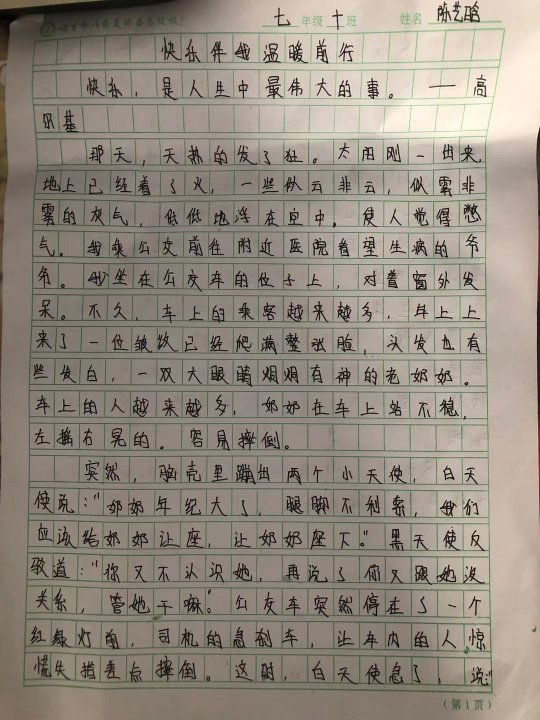 七年级十班 姓名
快乐伴我温暖前行
快乐，是人生中最伟大的事。——高
尔基
那天，天热的发了狂。太阳刚一出来，
地上已经着了火，一些似云非云，似雾非
雾的灰气，低低地浮在空中。使人觉得憋
气。我乘公交前往附近医院看望生病的爷
爷。我坐在公交车的位子上，对着窗外发
呆。不久，车上的乘客越来越多，车上上
来了一位皱纹已经爬满整张脸，头发也有
些发白，一双大眼睛炯炯有神的老奶奶。
车上的人越来越多，奶奶在车上站不稳，
左摇右晃的。容易摔倒。
突然，脑壳里蹦出两个小天使，白天
使说：“奶奶年纪大了，腿脚不利索，我们
应该给奶奶让座，让奶奶座下。”黑天使反
驳道：“你又不认识她，再说了你又跟她没
关系，管她干嘛。”公交车突然停在了一个
红绿灯前，司机的急刹车，让车内的人惊
慌失措差点摔倒。这时，白天使急了，说：“
（第1页）